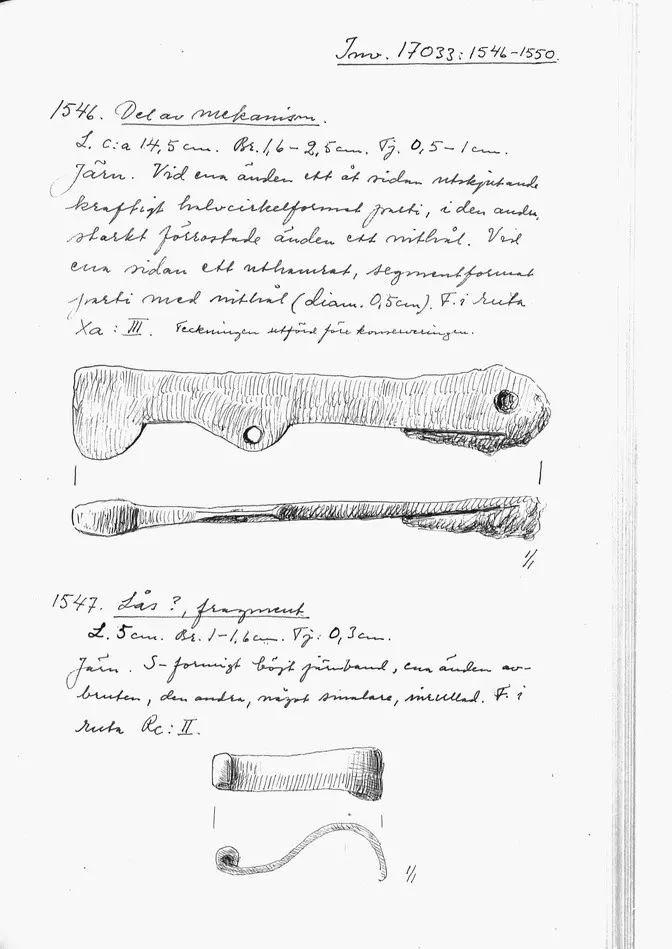 Inv. 17033:1546-1550.
1546. Del av mekanism.
L. c:a 14,5 cm. Br. 1,6-2,5 cm. Tj. 0,5-1 cm.
Järn. Vid ena änden ett åt sidan utskjutande
kraftigt halvcirkelformat parti, i den andra,
starkt förrostade änden ett nithål. Vid
ena sidan ett uthamrat, segmentformat
parti med nithål (diam. 0,5 cm). F. i ruta
Xa: III. Teckningen utförd före konserveringen.
1/1
1547. Lås?, fragment.
L. 5 cm. Br. 1-1,6 cm. Tj: 0,3 cm.
Järn. S-formigt böjt järnband, ena änden av-
bruten, den andra, något smalare, inrullad. F. i
ruta Rc: II.
1/1